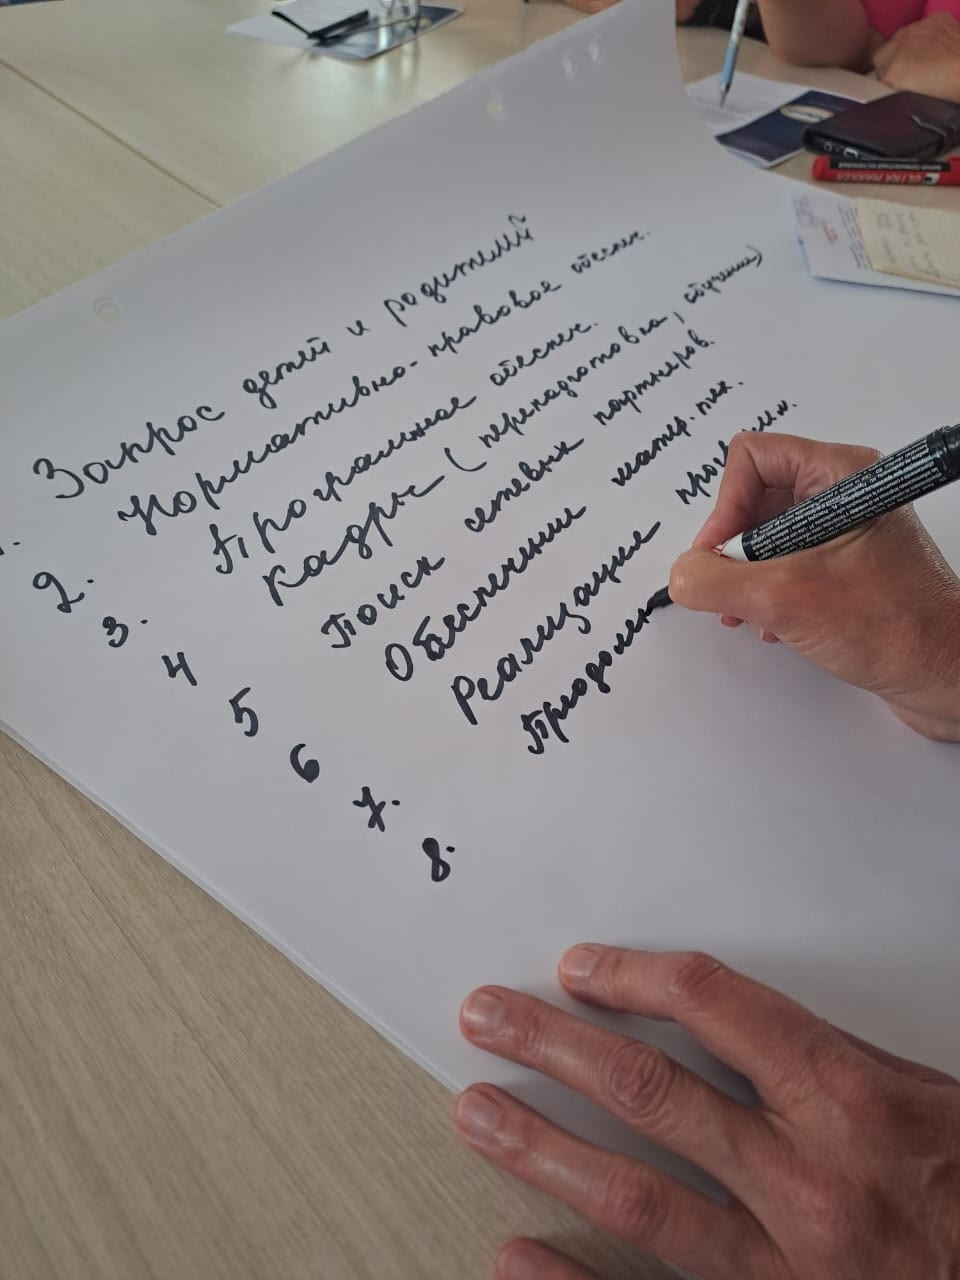 1. Запрос детей и родителей
2. Нормативно-правовое обеспеч.
3. Програмное обеспеч.
4 Кадры (переподготовка, обучение)
5 Поиск сетевых партнеров.
6 Обеспечение матер. тех.
7. Реализация
8. Преодолен